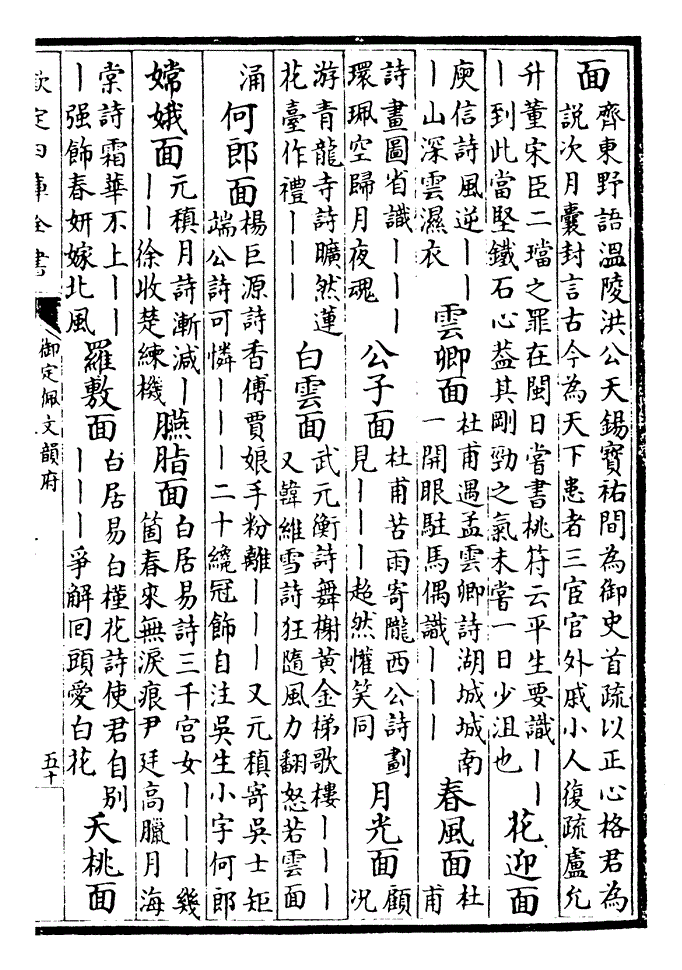 面
齊東野語溫陵洪公天錫寶祐間為御史首疏以正心格君為
說次月囊封言古今為天下患者三宦官外戚小人復疏盧允
升董宋臣二璫之罪在閩日嘗書桃符云平生要識｜｜
｜到此當堅鐵石心葢其剛勁之氣未嘗一日少沮也
花迎面
庾信詩風逆｜｜
｜山深雲濕衣
雲卿面
杜甫遇孟雲卿詩湖城城南
一開眼駐馬偶識｜｜｜
春風面
杜
甫
詩畫圖省識｜｜｜
環珮空歸月夜魂
公子面
杜甫苦雨寄隴西公詩劃
見｜｜｜超然懽笑同
月光面
顧
况
游青龍寺詩曠然蓮
花臺作禮｜｜｜
白雲面
武元衡詩舞榭黃金梯歌樓｜｜｜
又韓維雪詩狂隨風力翻怒若雲面
涌
何郎面
楊巨源詩香傅賈娘手粉離｜｜｜又元稹寄吳士矩
端公詩可憐｜｜｜二十纔冠飾自注吳生小字何郎
嫦娥面
元稹月詩漸減｜
｜｜徐收楚練機
臙脂面
白居易詩三千宮女｜｜｜幾
箇春來無淚痕尹廷高臘月海
棠詩霜華不上｜｜
｜强飾春妍嫁北風
羅敷面
白居易白槿花詩使君自別
｜｜｜爭解回頭愛白花
夭桃面
欽定四庫全書
御定佩文韻府
五十